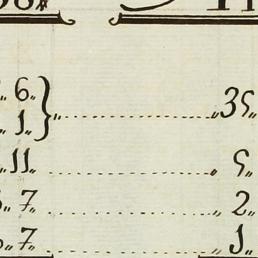 „ 6„
„ 1„ } „ ........ „ 35„
„ 11„ ........ „ 5„
„ 7„ ........ „ 2„
„ 7„ ........ „ 1„